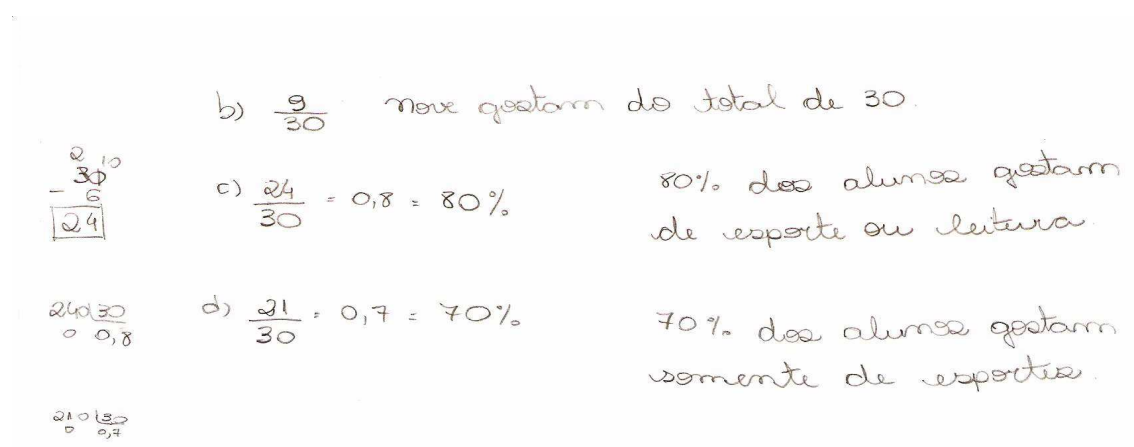 b) 9/30 nove gostam do total de 30.
2 10
30
- 6
24
c) 24/30 = 0,8 = 80%
80% dos alunos gostam
de esporte ou leitura.
240 30
0 0,8
d) 21/30 = 0,7 = 70%
70% dos alunos gostam
somente de esportes.
210 30
0 0,7